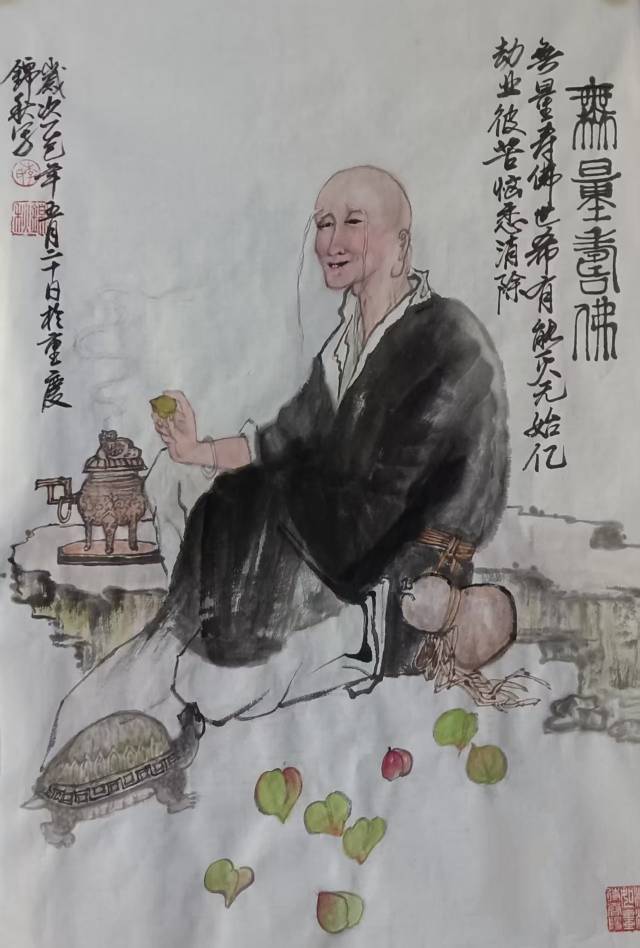 無量壽佛
無量寿佛世希有能灭无始亿
劫业彼苦恼悉消除
歲次乙巳年五月二十日於重慶
錦秋写